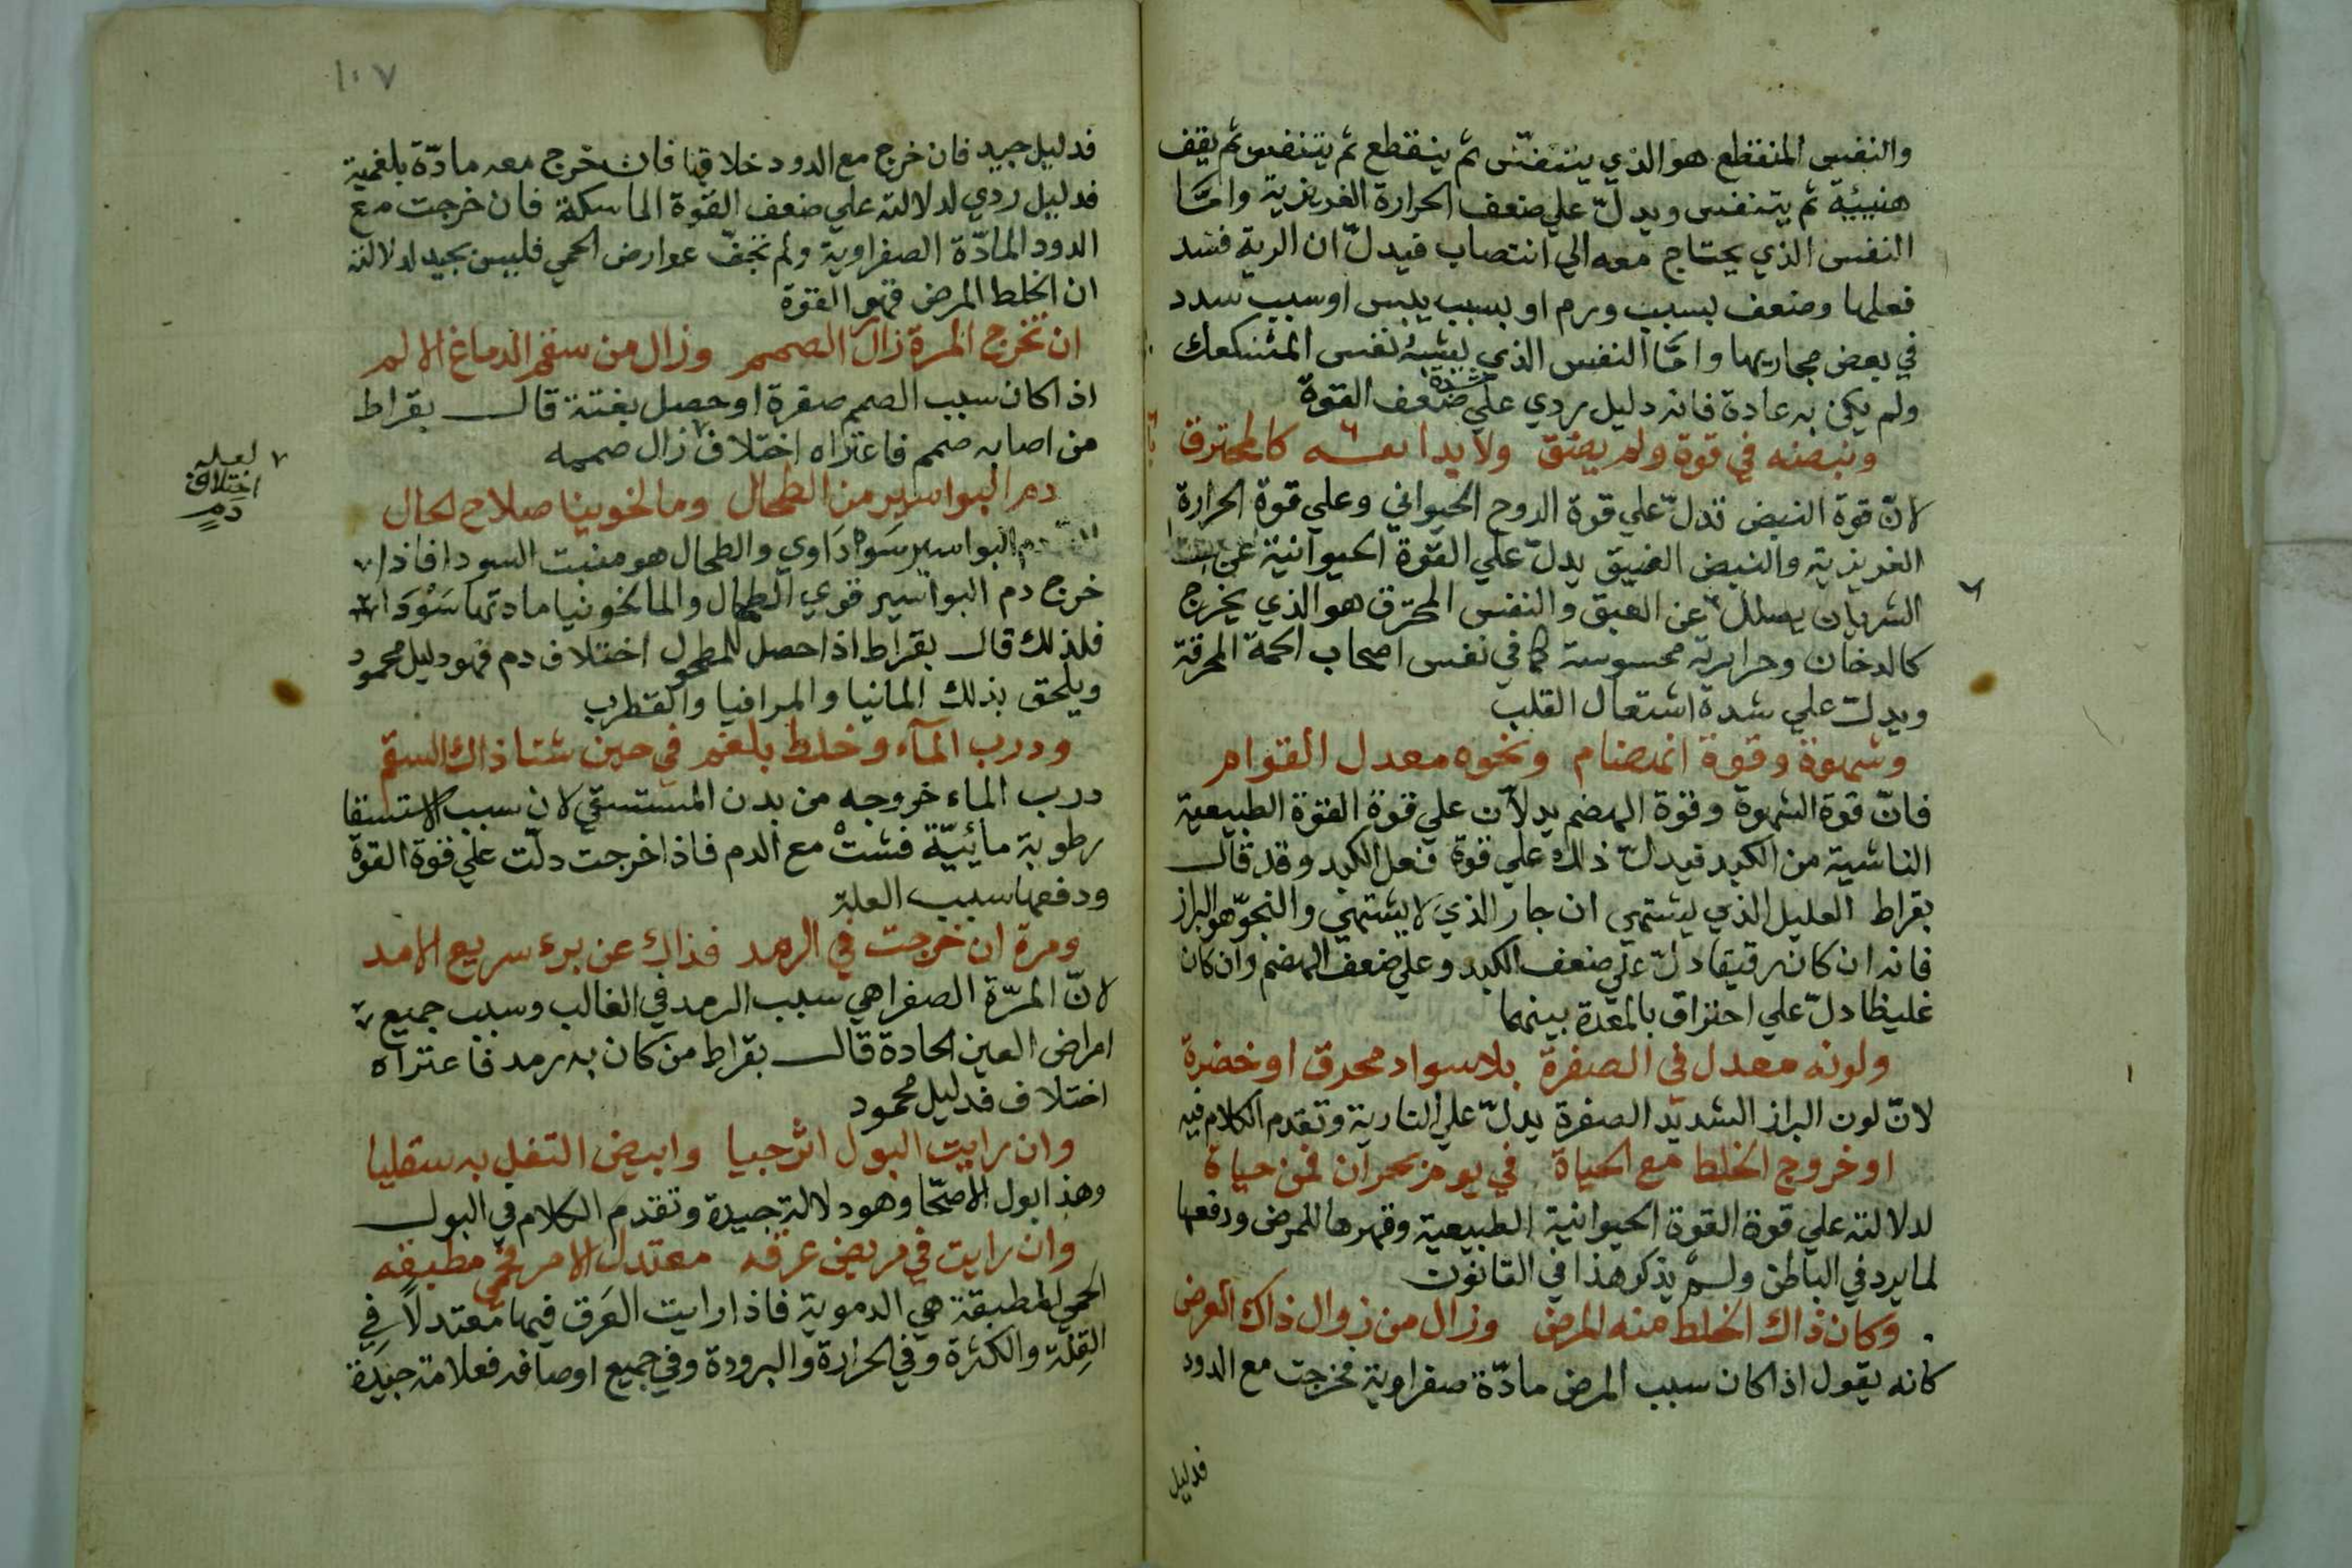 والنفس المنقطع هو الذي يتنفس ثم ينقطع ثم يتنفس ثم يقف
هنيئة ثم يتنفس ويدلّ علي ضعف الحرارة الغريزية وامّا
النفس الذي يحتاج معه الي انتصاب فيدلّ ان الرية فسد
فعلها وضعف بسبب ورم او بسبب يبس او سبب سدد
في بعض مجاريها وامّا النفس الذي يشبه نفس
ولم يكن به عادة فانه دليل ردي علي شدة ضعف القوة
ونبضه في قوة ولم يضق ولا بدا نفسه كالمحترق
لانّ قوة النبض تدلّ علي قوة الروح الحيواني وعلي قوة الحرارة
الغريزية والنبض الضيق يدلّ علي القوة الحيوانية عن
الشريان عن الضيق والنفس المحترق هو الذي يخرج
كالدخان وحرارته محسوسة كما في نفس اصحاب الحمة المحرقة
ويدلّ علي شدة اشتعال القلب
وشهوة وقوة انهضام ونحوه معدل القوام
فانّ قوة الشهوة وقوة الهضم يدلاّن علي قوة القوة الطبيعية
الناشية من الكبد فيدلّ ذلك علي قوة فعل الكبد وقد قال
بقراط العليل الذي يشتهي ان جار الذي لا يشتهي والنجوّ هو البراز
فانه ان كان رقيقا دلّ علي ضعف الكبد وعلي ضعف الهضم وان كان
غليظا دلّ علي احتراق بالمعدة بينهما
ولونه معدل في الصفرة بلا سواد محرق او خضرة
لانّ لون البراز الشديد الصفرة يدلّ علي النارية وتقدم الكلام فيه
او خروج الخلط مع الحياة في يوم بحران فمن حياة
لدلالته علي قوة القوة الحيوانية الطبيعية وقهرها للمرض ودفعها
لما يرد في الباطن ولم يذكر هذا في القانون
وكان ذاك الخلط منه المرض وزال من زوال ذاك العرض
كانه يقول اذا كان سبب المرض مادّة صفراوية فخرجت مع الدود
فدليل
١٠٧
فدليل جيد فان خرج مع الدود خلا فان خرج معه مادّة بلغمية
فدليل ردي لدلالته علي ضعف القوة الماسكة فان خرجت مع
الدود المادّة الصفراوية ولم تخفّ عوارض الحمي فليس بجيد لدلالته
ان الخلط المرض قهر القوة
ان تخرج المرة زال الصمم وزال من سقم الدماغ الالم
اذا كان سبب الصمم صفرة او حصل بغتة قال بقراط
من اصابه صمم فاعتراه اختلاف زال صممه
لعله
اختلاف
دم
دم البواسير من الطحال ومالخوينا صلاح لحال
دم البواسير سَوداوي والطحال هو منبت السودا فاذا
خرج دم البواسير قوي الطحال والمالخونيا مادتها سَوْدَا
فلذلك قال بقراط اذا حصل للمطحول اختلاف دم فهو دليل محمود
ويلحق بذلك المانيا والمراقيا والقطرب
ودرب المآء وخلط بلغم في حين شتا ذاك السقم
درب الماء خروجه من بدن المستسقي لان سبب الاستسقا
رطوبة مائيّة فشتْ مع الدم فاذا خرجت دلّت علي قوة القوة
ودفعها سبب العلة
ومرة ان خرجت في الرمد فذاك عن برء سريع الامد
لانّ المرّة الصفرا هي سبب الرمد في الغالب وسبب جميع
امراض العين الحادة قال بقراط من كان به رمد فاعتراه
اختلاف فدليل محمود
وان رايت البول اترجيا وابيض التفل به سقليا
وهذا بول الاصحّا وهو دلالة جيدة وتقدم الكلام في البول
وان رايت في مريض عرقه معتدل الامر في مطبقه
الحمي المطبقة هي الدموية فاذا رايت العَرق فيها معتدلاً في
القِلة والكثرة وفي الحرارة والبرودة وفي جميع اوصافه فعلامة جيّدة